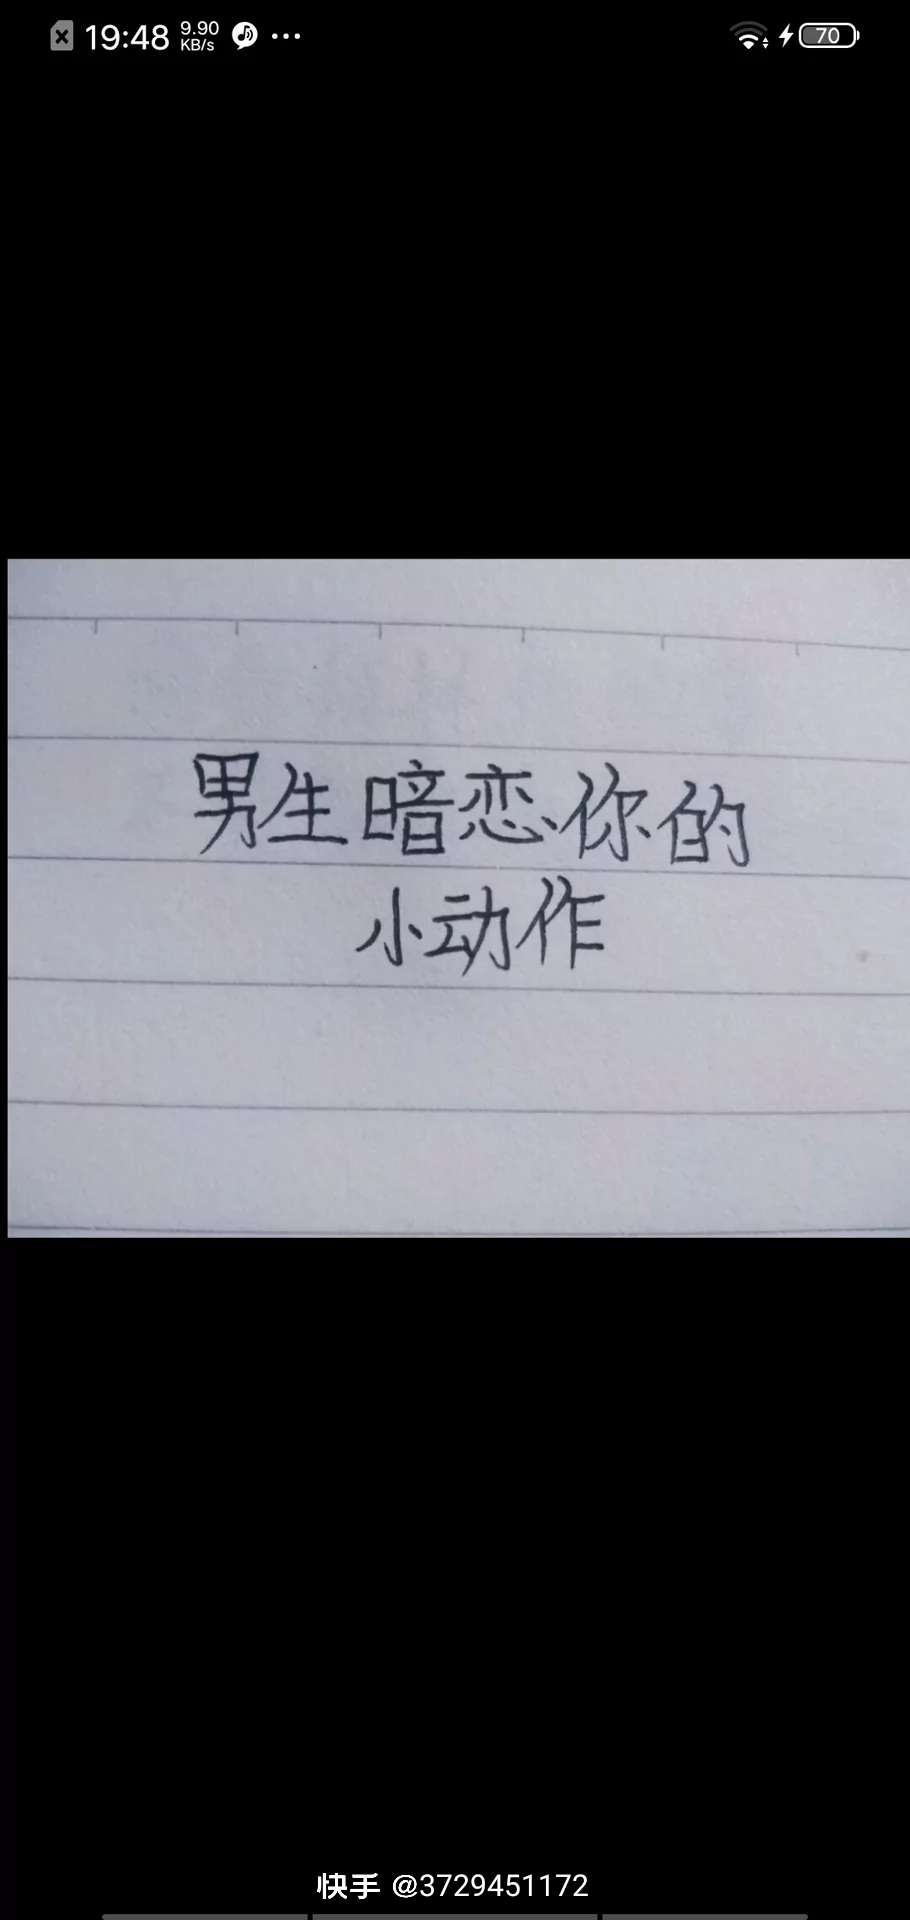 19:48 9.90 KB/s 70
男生暗恋你的
小动作
快手 @3729451172